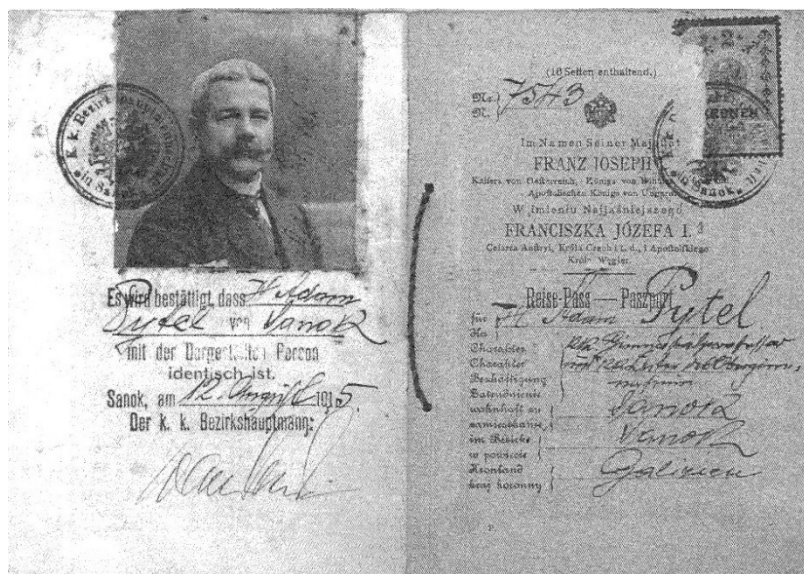 K. k. Bezirkshauptmannschaft
in Sanok
Es wird bestättigt, dass H Adam
Pytel von Sanok
mit der Dargestellten Person
identisch ist.
Sanok, am 12. August 1915
Der k. k. Bezirkshauptmann:
(16 Seiten enthaltend.)
No
N. 7543
Im Namen Seiner Majestät
FRANZ JOSEPH I.
Kaisers von Oesterreich, Königs von Böhmen
Apostolischen Königs von Ungarn
W Imieniu Najjaśniejszego
FRANCISZKA JÓZEFA I.
Cesarza Austryi, Króla Czech i t. d., i Apostolskiego
Króla Węgier
2 2
KRONEN
Sanok
Reise-Pass — Paszport
für H Adam Pytel
dla
Charakter
Charakter
Beschäftigung
Zatrudnienie
wohnhaft zu Sanok
zamieszkały
im Bezirke Sanok
w powiecie
Kronland Galizien
kraj koronny